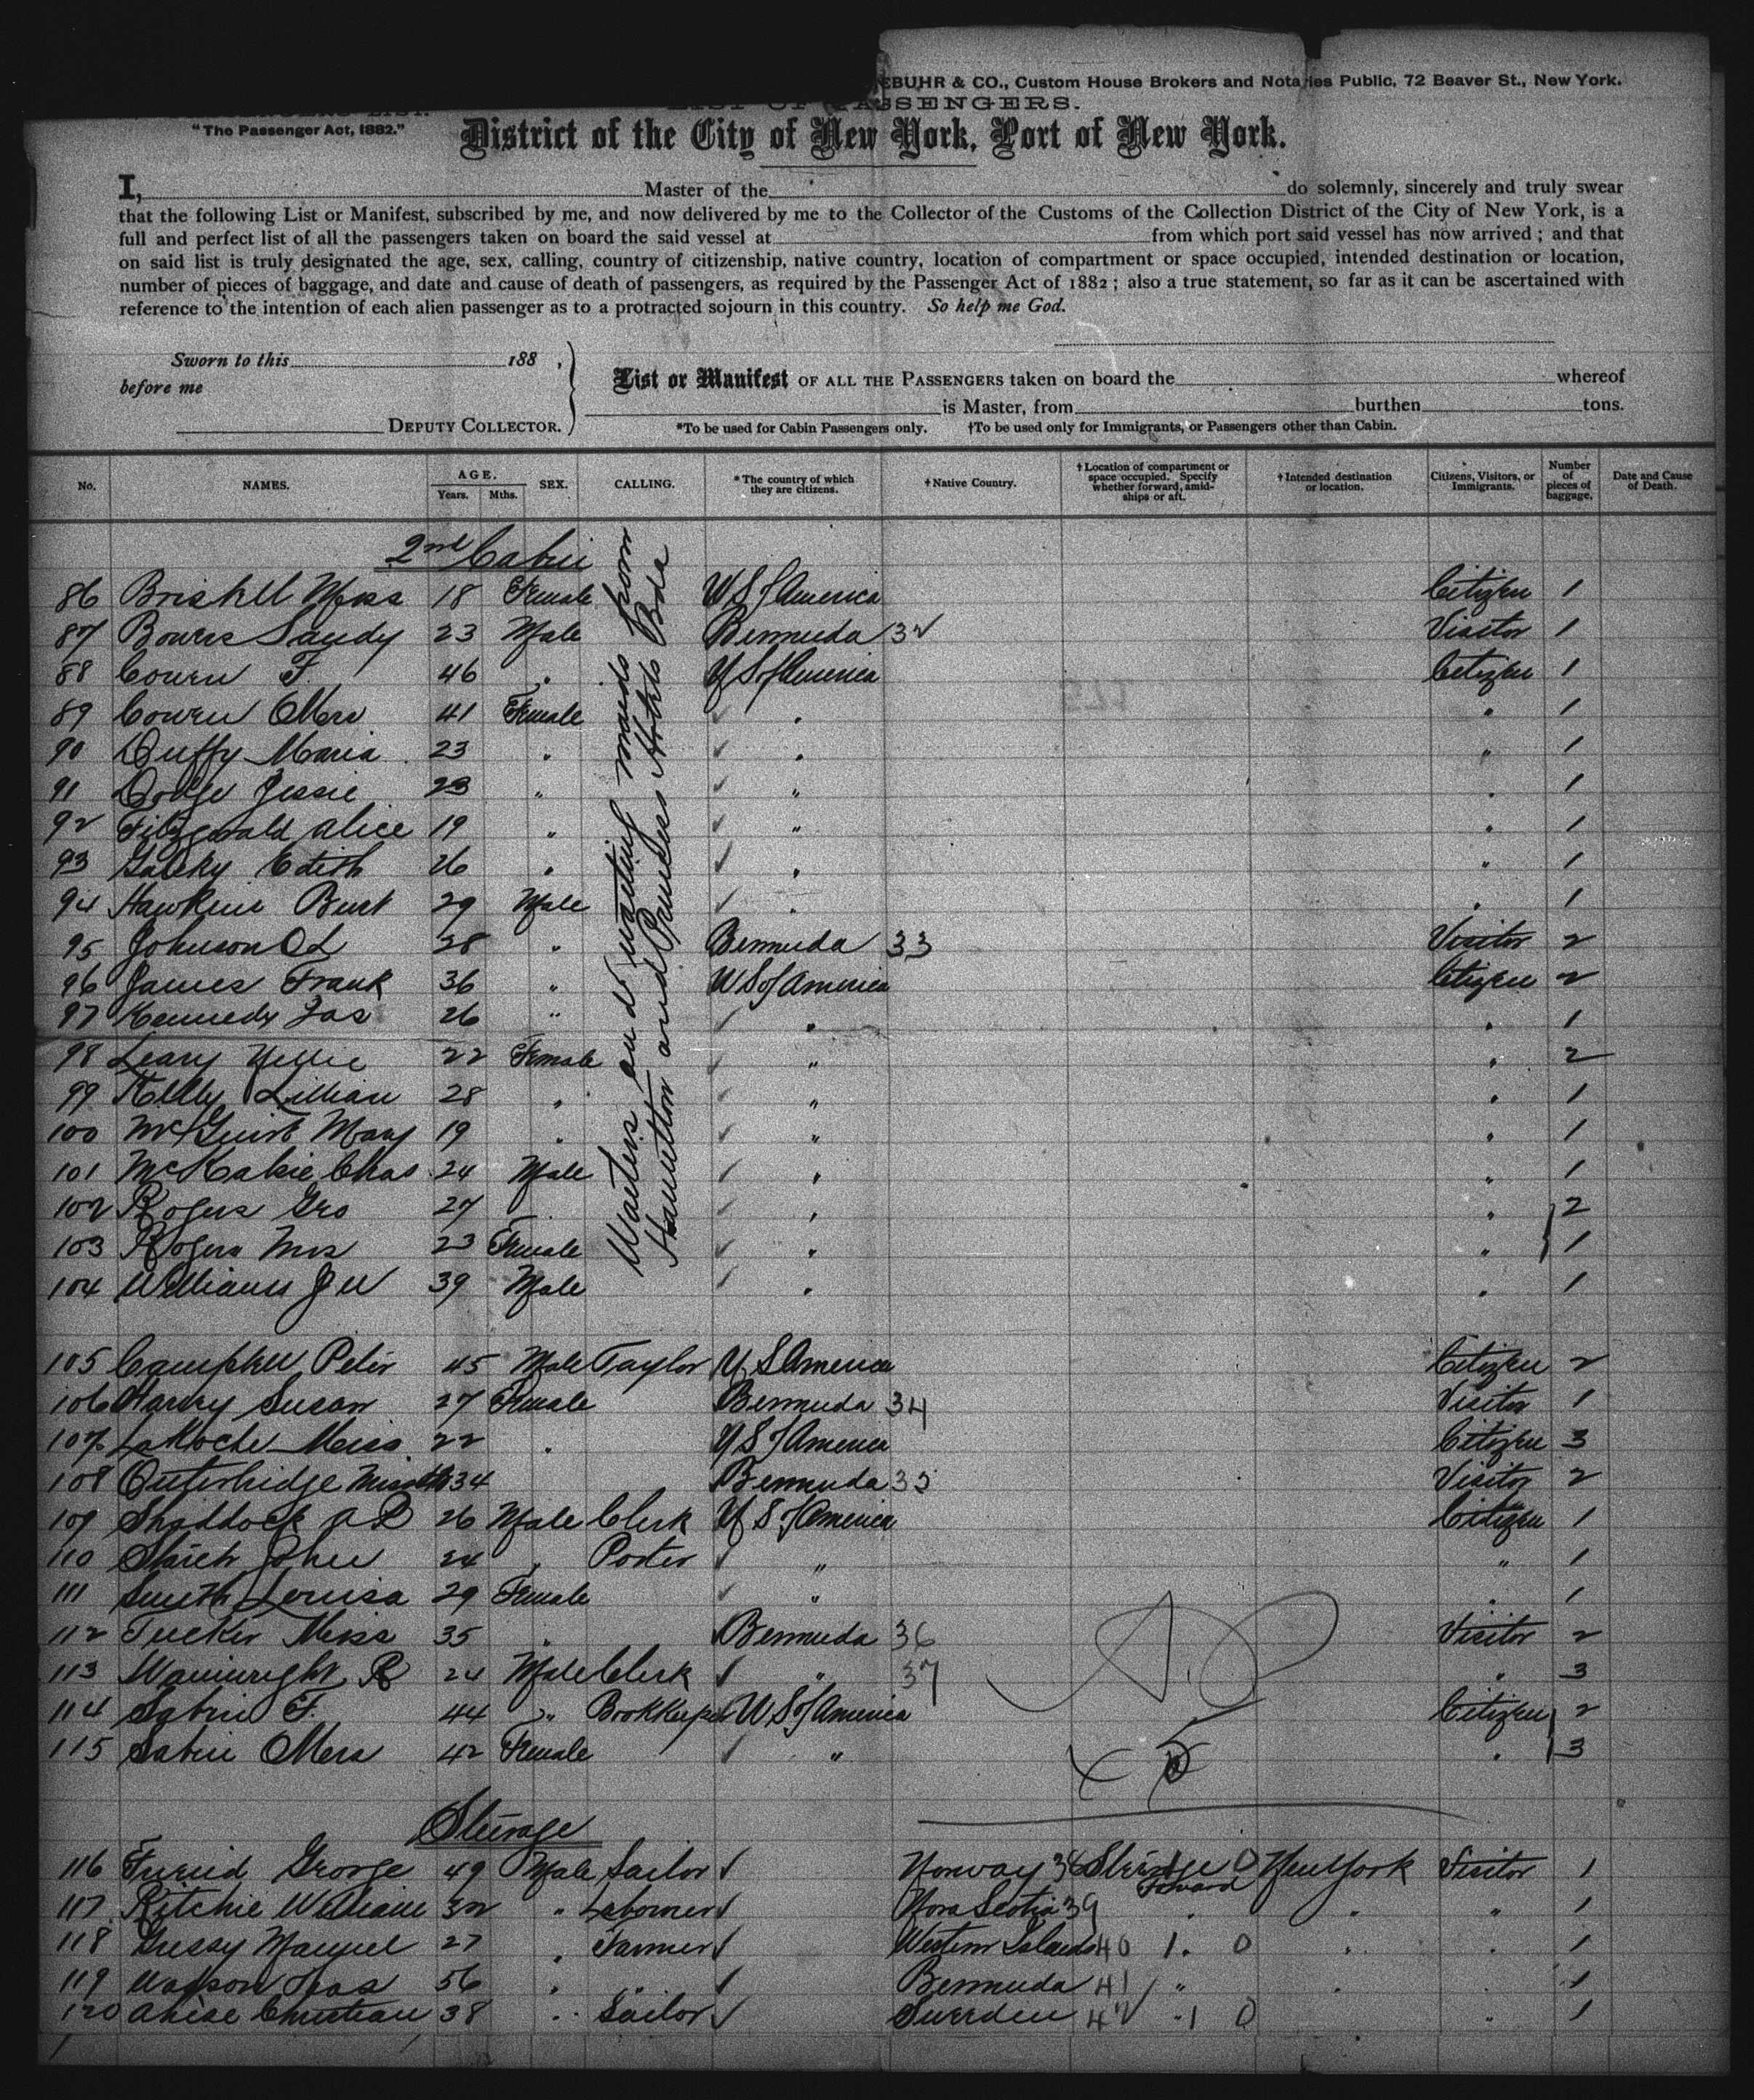 EBUHR & CO., Custom House Brokers and Notaries Public, 72 Beaver St., New York.
LIST OF PASSENGERS.
"The Passenger Act, 1882."
District of the City of New York, Port of New York.
I, Master of the do solemnly, sincerely and truly swear
that the following List or Manifest, subscribed by me, and now delivered by me to the Collector of the Customs of the Collection District of the City of New York, is a
full and perfect list of all the passengers taken on board the said vessel at from which port said vessel has now arrived; and that
on said list is truly designated the age, sex, calling, country of citizenship, native country, location of compartment or space occupied, intended destination or location,
number of pieces of baggage, and date and cause of death of passengers, as required by the Passenger Act of 1882; also a true statement, so far as it can be ascertained with
reference to the intention of each alien passenger as to a protracted sojourn in this country. So help me God.
Sworn to this 188 ,
before me
DEPUTY COLLECTOR.
List or Manifest OF ALL THE PASSENGERS taken on board the whereof
is Master, from burthen tons.
*To be used for Cabin Passengers only. †To be used only for Immigrants, or Passengers other than Cabin.
No. NAMES. AGE. Years. Mths. SEX. CALLING. *The country of which they are citizens. †Native Country. †Location of compartment or space occupied. Specify whether forward, amidships or aft. †Intended destination or location. Citizens, Visitors, or Immigrants. Number of pieces of baggage. Date and Cause of Death.
2nd Cabin
Waiters and waiting maids from
Hamilton and Princess Hotels Bda
86 Miss 18 Female U S of America Citizen 1
87 Bowers Sandy 23 Male Bermuda 32 Visitor 1
88 Cowen F. 46 " U S of America Citizen 1
89 Cowen Mrs 41 Female " " 1
90 Duffy Maria 23 " " " 1
91 Dodge Jessie 23 " " " 1
92 Fitzgerald Alice 19 " " " 1
93 Edith 26 " " " 1
94 Hawkins Burt 29 Male " " 1
95 Johnson 28 " Bermuda 33 Visitor 2
96 James Frank 36 " U S of America Citizen 2
97 Kennedy Jas 26 " " " 1
98 Leary Nellie 22 Female " " 2
99 Kelly Lillian 28 " " " 1
100 McGuirk Mary 19 " " " 1
101 McKabie Chas 24 Male " " 1
102 Rogers Geo 27 " " 2
103 Rogers Mrs 23 Female " " 1
104 Williams J W 39 Male " " 1
105 Campbell Peter 45 Male Taylor U S America Citizen 2
106 Harvey Susan 27 Female Bermuda 34 Visitor 1
107 LaRoche Miss 22 " U S of America Citizen 3
108 Outerbridge Miss 34 Bermuda 35 Visitor 2
109 Shaddock A D 26 Male Clerk U S of America Citizen 1
110 John 24 " Porter " " 1
111 Smith Louisa 29 Female " " 1
112 Tucker Miss 35 " Bermuda 36 Visitor 2
113 Wainwright R 24 Male Clerk " 37 " 3
114 Sabin F. 44 " Bookkeeper U S of America Citizen 2
115 Sabin Mrs 42 Female " " 3
Steerage
116 George 49 Male Sailor Norway 38 Steerage Forward 0 New York Visitor 1
117 Ritchie William 32 " Laborer Nova Scotia 39 " " " 1
118 Manuel 27 " Farmer Western Islands 40 1 " 0 " " 1
119 Watson Jas 56 " " Bermuda 41 " " " 1
120 Christian 38 " Sailor Sweeden 42 " 1 0 " 1